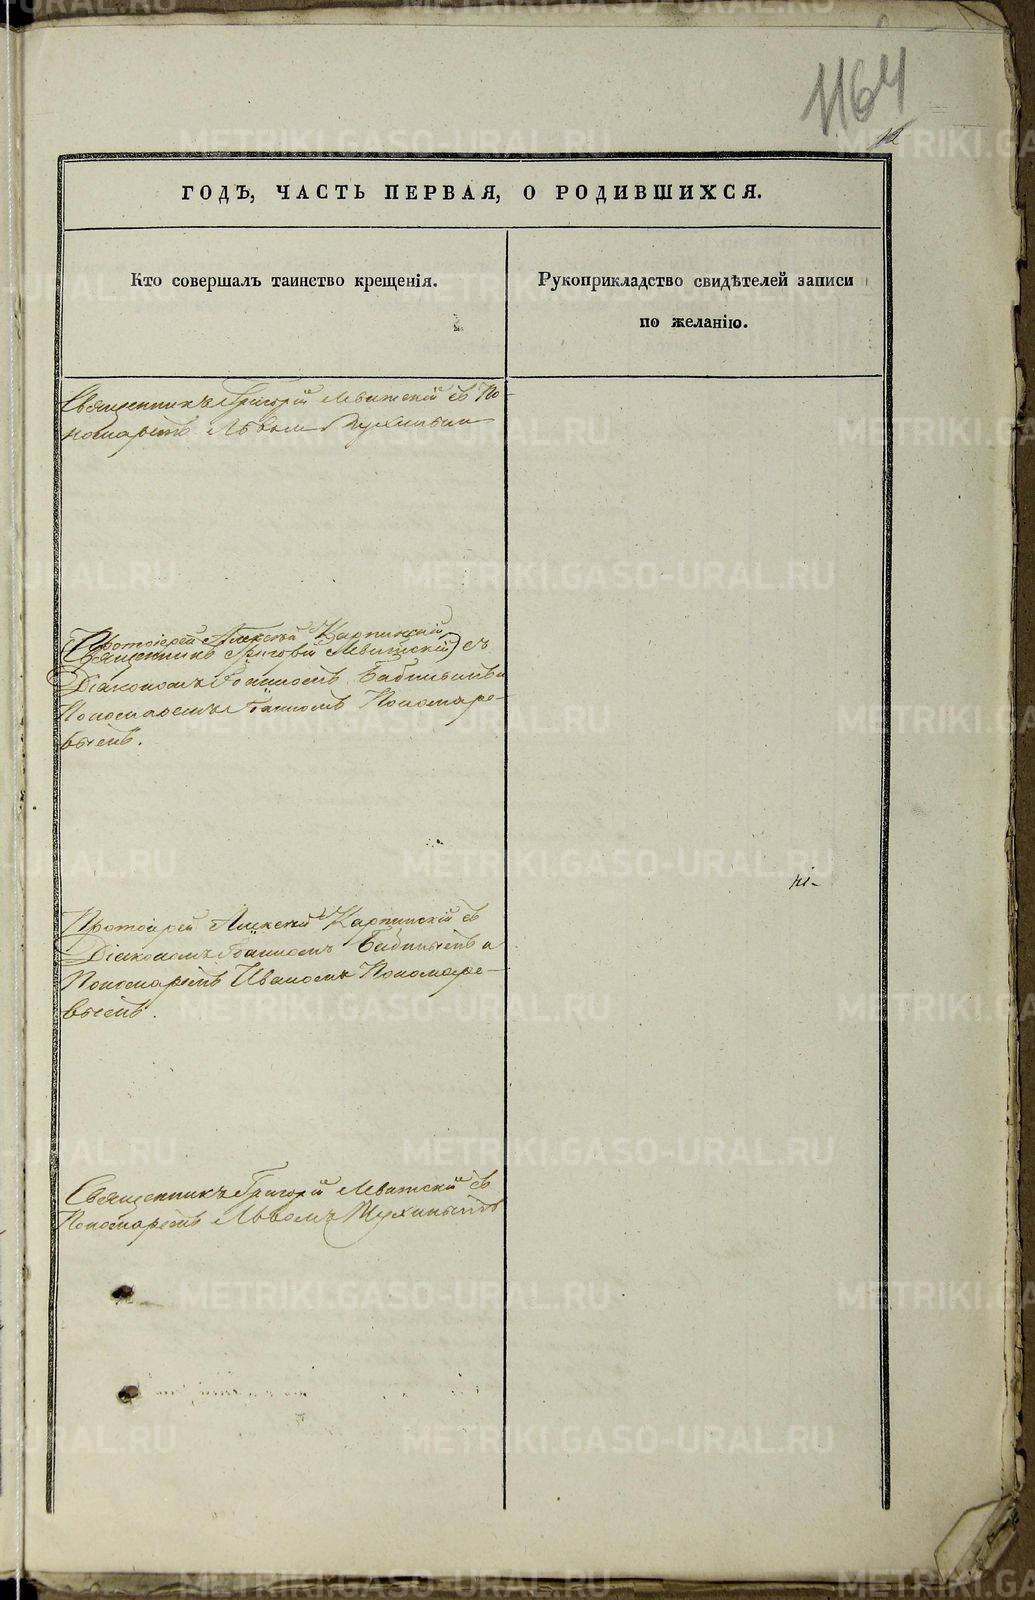 1164
12
ГОДЪ, ЧАСТЬ ПЕРВАЯ, О РОДИВШИХСЯ.
Кто совершалъ таинство крещенія.
Рукоприкладство свидѣтелей записи
по желанію.
Священникъ Григорій Левитскій съ По-
номаремъ Львомъ
Протоіерей Алексѣй Карпинскій
(Священникъ Григорій Левитскій) съ
Діакономъ Іоанномъ Бабинымъ и
Пономаремъ Іоанномъ Пономаре-
вымъ.
Протоіерей Алексѣй Карпинскій съ
Діакономъ Іоанномъ Бабинымъ и
Пономаремъ Иваномъ Пономаре-
вымъ.
Священникъ Григорій Левитскій съ
Пономаремъ Львомъ
METRIKI.GASO-URAL.RU